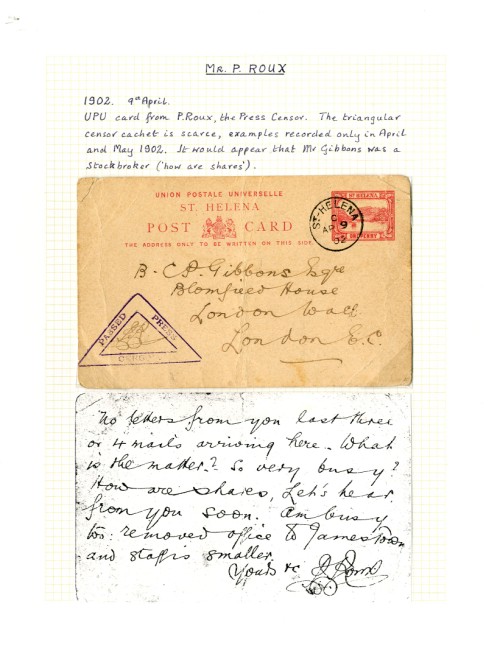 MR. P. ROUX
1902. 9th April.
UPU card from P.Roux, the Press Censor. The triangular
censor cachet is scarce, examples recorded only in April
and May 1902. It would appear that Mr Gibbons was a
Stockbroker ('how are shares').
UNION POSTALE UNIVERSELLE
ST. HELENA
POST CARD
THE ADDRESS ONLY TO BE WRITTEN ON THIS SIDE.
ST. HELENA
ONE PENNY
ST. HELENA
C
AP 9
02
Gibbons Esqre
Blomfield House
London Wall
London E.C.
PASSED PRESS
CENSOR
No letters from you last three
or 4 mails arriving here. What
is the matter? So very busy?
How are shares, Let's hear
from you soon. Am busy
too: removed office to Jamestown
and staff is smaller.
Yours &c P Roux